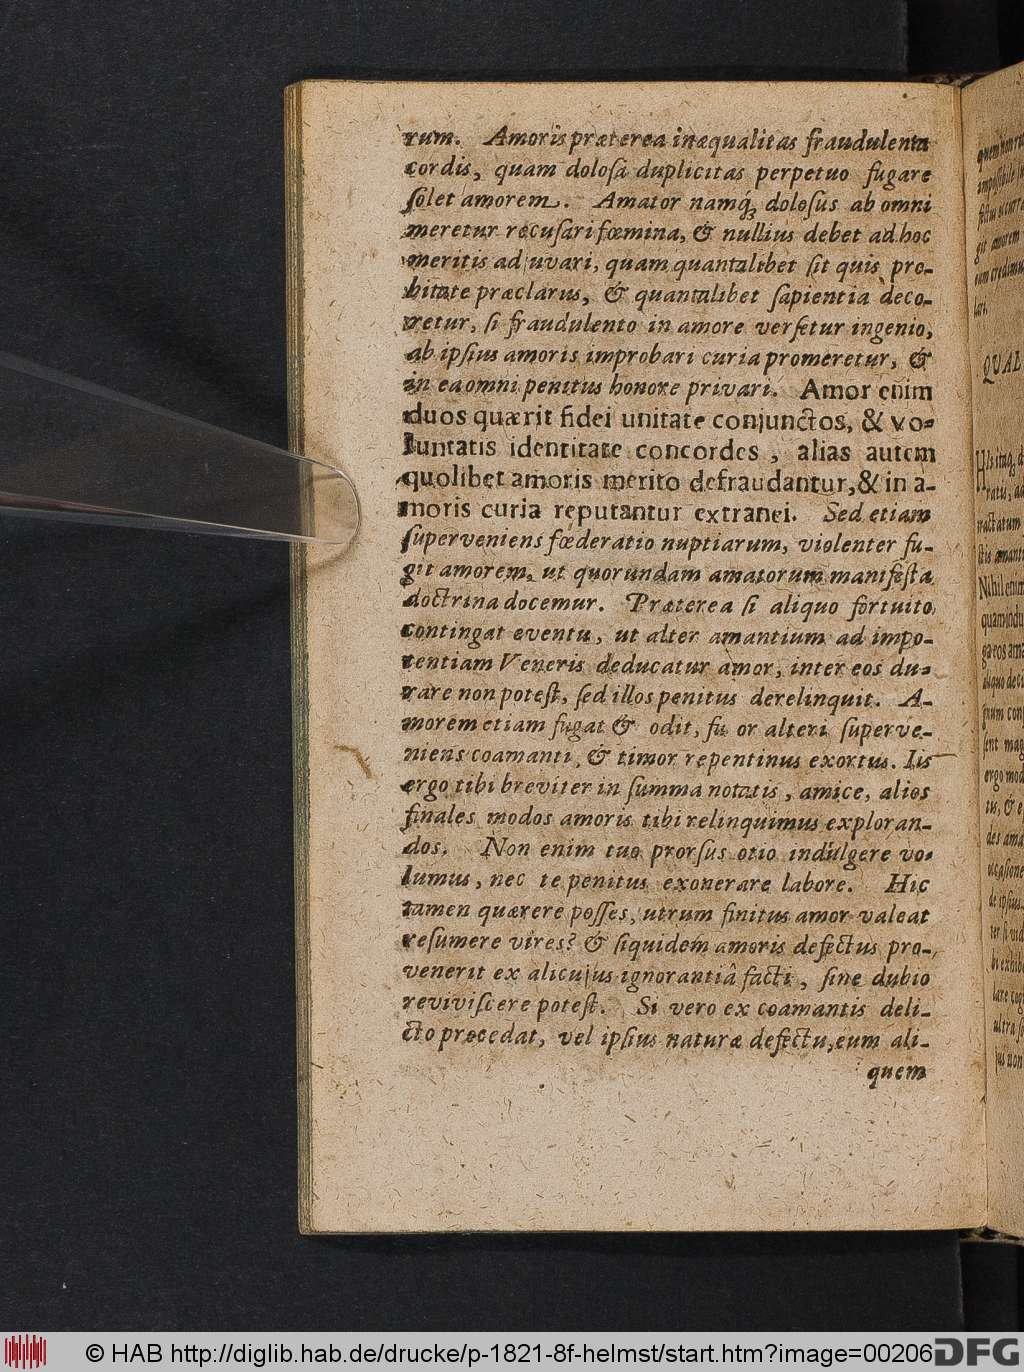 rum. Amoris præterea inæqualitas fraudulenta
cordis, quam dolosâ duplicitas perpetuo fugare
solet amorem. Amator namq́; dolosus ab omni
meretur recusari fœmina, & nullius debet ad hoc
meritis adjuvari, quam quantalibet sit quis pro-
bitate præclarus, & quantalibet sapientia deco-
retur, si fraudulento in amore versetur ingenio,
ab ipsius amoris improbari curia promeretur, &
in ea omni penitus honore privari. Amor enim
duos quærit fidei unitate conjunctos, & vo-
luntatis identitate concordes, alias autem
quolibet amoris merito defraudantur, & in a-
moris curia reputantur extranei. Sed etiam
superveniens fœderatio nuptiarum, violenter fu-
git amorem, ut quorundam amatorum manifesta
doctrina docemur. Præterea si aliquo fortuito
contingat eventu, ut alter amantium ad impo-
tentiam Veneris deducatur amor, inter eos du-
rare non potest, sed illos penitus derelinquit. A-
morem etiam fugat & odit, fu or alteri superve-
niens coamanti, & timor repentinus exortus. Iis
ergo tibi breviter in summa notatis, amice, alios
finales modos amoris tibi relinquimus exploran-
dos. Non enim tuo prorsus otio indulgere vo-
lumus, nec te penitus exonerare labore. Hic
tamen quærere posses, utrum finitus amor valeat
resumere vires? & siquidem amoris defectus pro-
venerit ex alicujus ignorantiâ facti, sine dubio
reviviscere potest. Si vero ex coamantis deli-
cto procedat, vel ipsius naturæ defectu, eum ali-
quem
QUAL
Nihil enim
© HAB http://diglib.hab.de/drucke/p-1821-8f-helmst/start.htm?image=00206
DFG